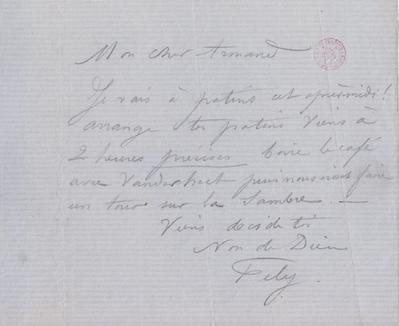 Mon cher Armand
Je vais à patins cet après-midi!
arrange tes patins Viens à
2 heures précises boire le café
avec Vanderhect puis nous nous faire
un tour sur la Sambre. —
Viens decide ti
Non de Dieu
Fély.